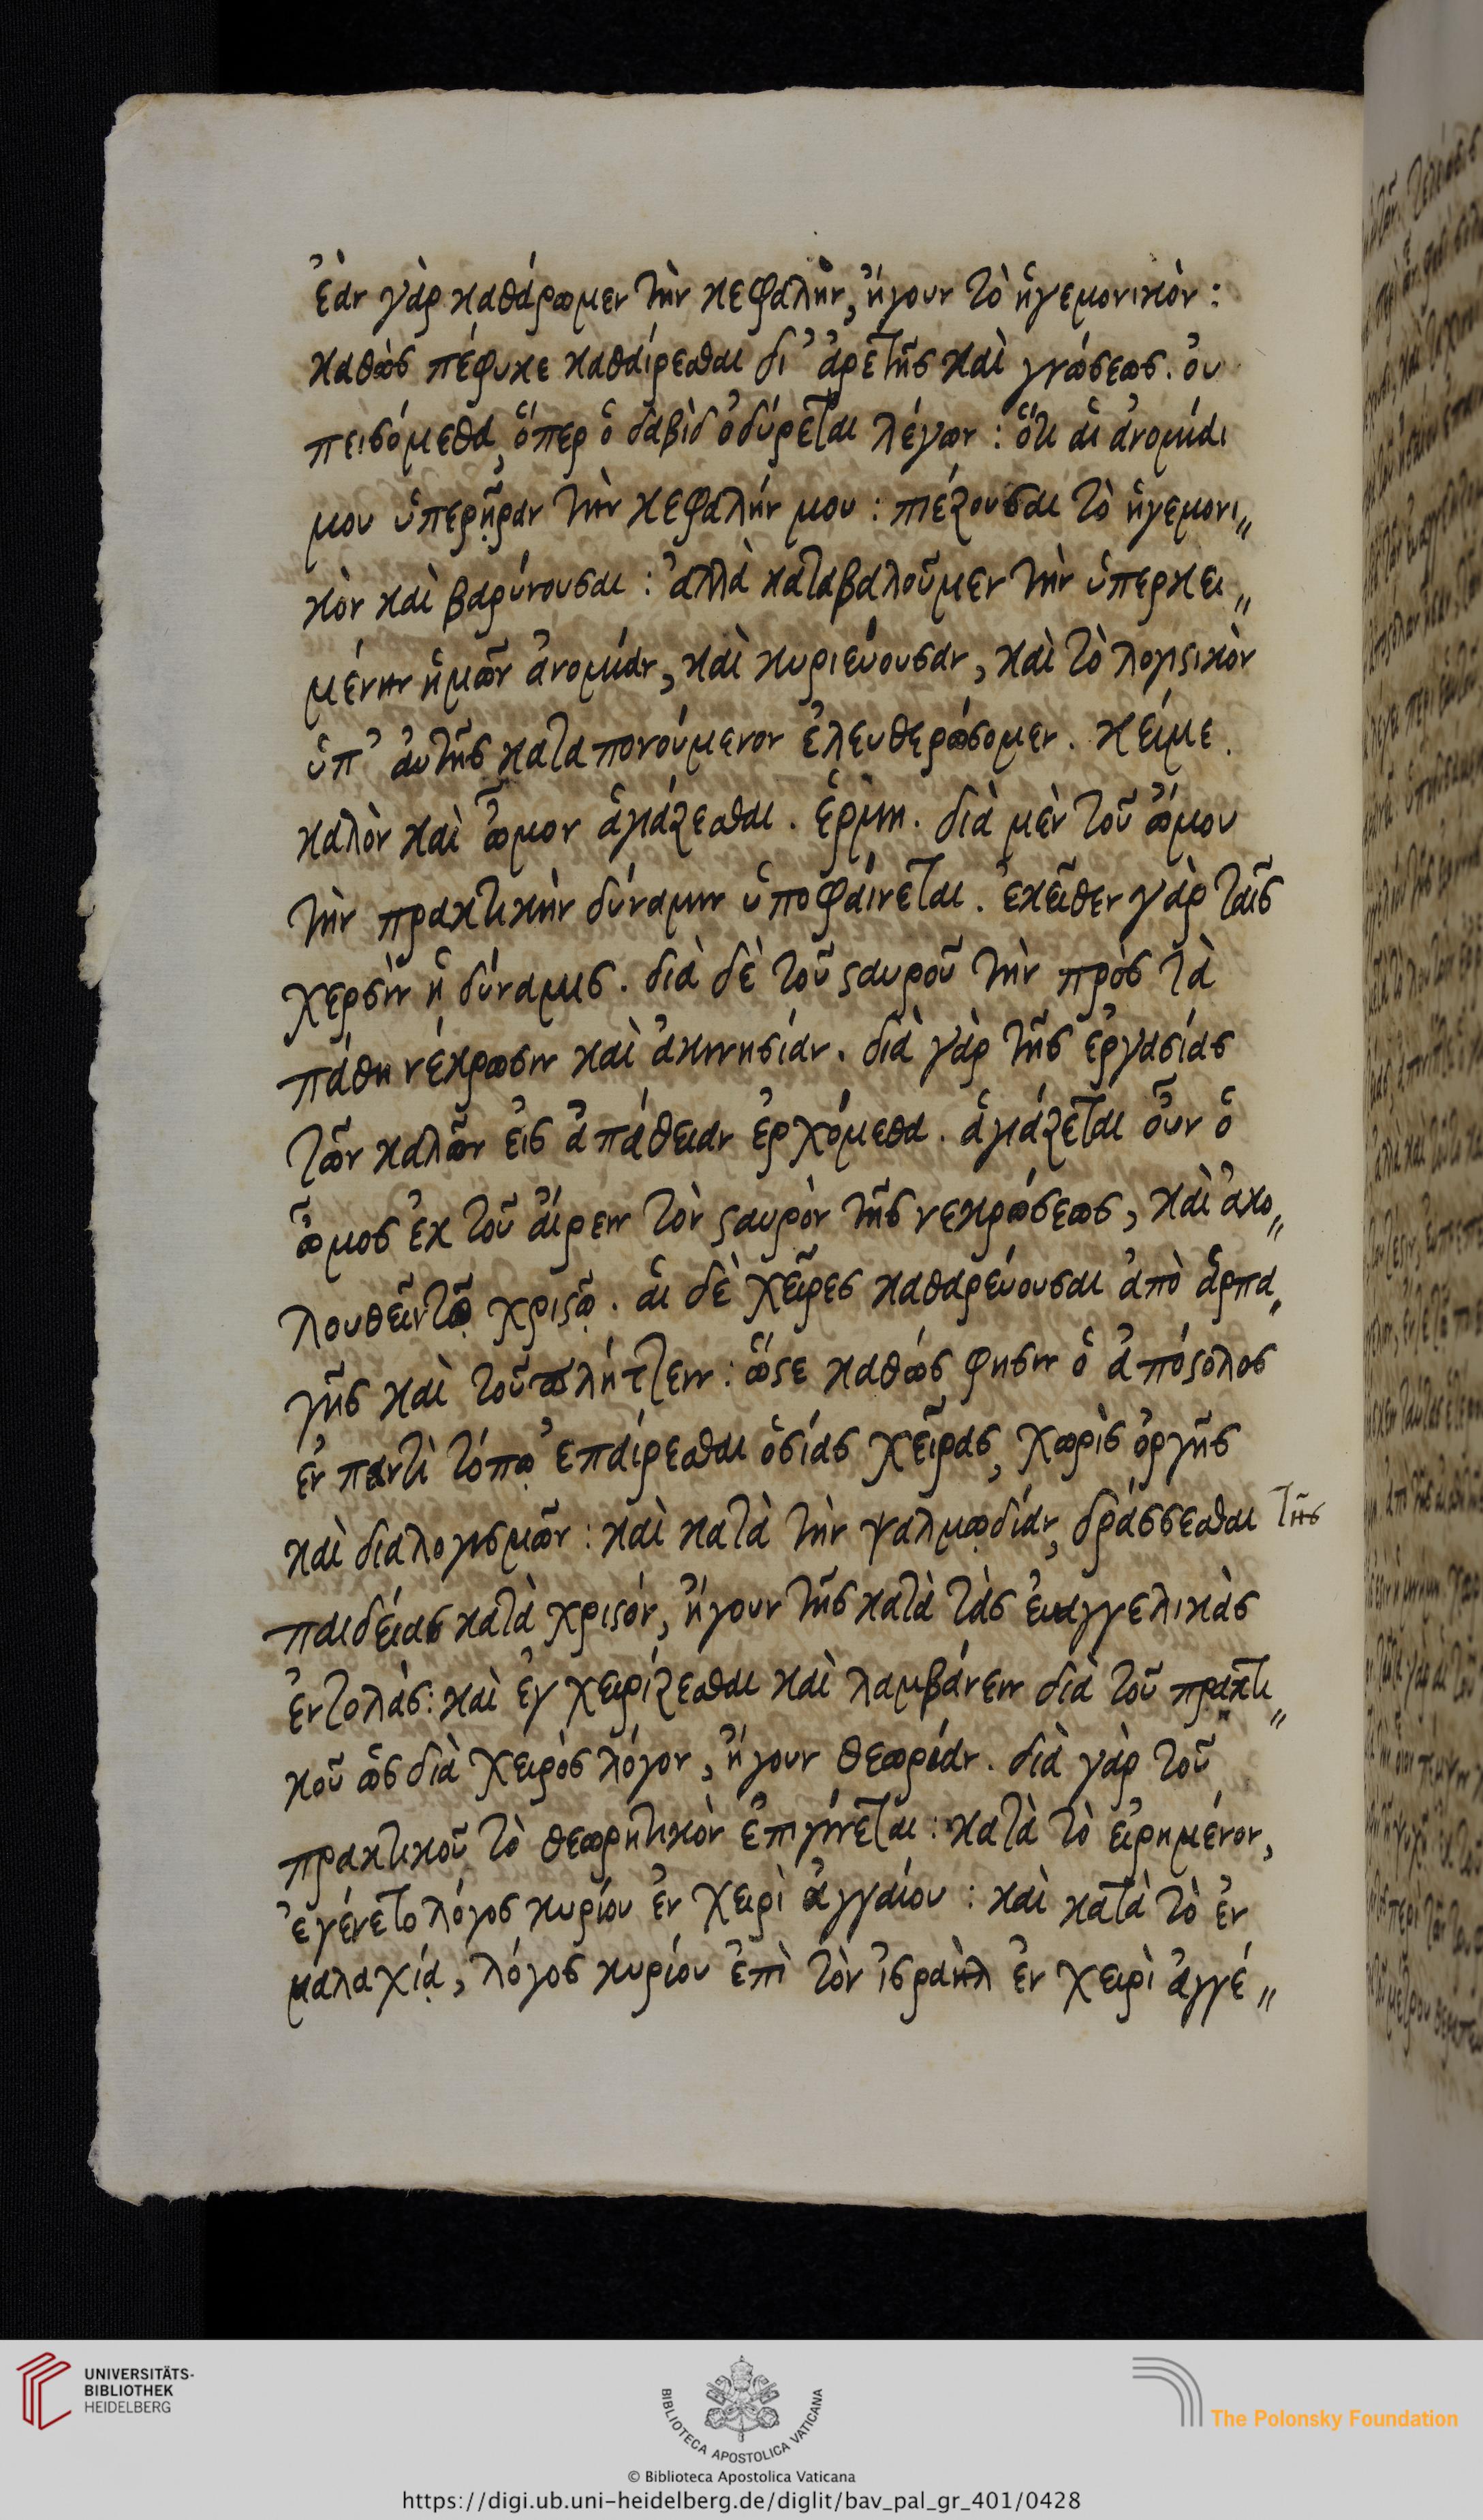 ἐὰν γὰρ καθάρωμεν τὴν κεφαλὴν, ἤγουν τὸ ἡγεμονικὸν :
καθὼς πέφυκε καθαίρεσθαι δι᾽ ἀρετῆς καὶ γνώσεως. ὀυ
πεισόμεθα, ὅπερ ὁ δαβὶδ ὀδύρεται λέγων : ὅτι ἁι ἀνομίαι
μου ὑπερῆραν τὴν κεφαλήν μου : πιέζουσαι τὸ ἡγεμονι„
κὸν καὶ βαρύνουσαι : ἀλλὰ καταβαλοῦμεν τὴν ὑπερκει„
μένην ἡμῶν ἀνομίαν, καὶ κυριεύουσαν, καὶ τὸ λογιϛικὸν
ὑπ᾽ ἀυτῆς καταπονούμενον ἐλευθερώσομεν. κείμε.
καλὸν καὶ ὦμον ἁγιάζεσθαι. ἑρμη. διὰ μὲν τοῦ ὤμου
τὴν πρακτικὴν δύναμιν ὑποφαίνεται. ἐκεῖθεν γὰρ ταῖς
χερσὶν ἡ δύναμις. διὰ δὲ τοῦ ϛαυροῦ τὴν πρὸς τὰ
πάθη νέκρωσιν καὶ ἀκινησίαν. διὰ γὰρ τῆς ἐργασίας
τῶν καλῶν ἐις ἀπάθειαν ἐρχόμεθα. ἁγιάζεται οὖν ὁ
ὦμος ἐκ τοῦ ἀίρειν τὸν ϛαυρὸν τῆς νεκρώσεως, καὶ ἀκο„
λουθεῖν τῷ χριϛῷ. ἁι δὲ χεῖρες καθαρεύουσαι ἀπὸ ἁρπα„
γῆς καὶ τοῦ πλήττειν : ὥϛε καθώς φησιν ὁ ἀπόϛολος
ἐν παντὶ τόπῳ ἐπαίρεσθαι ὁσίας χεῖρας, χωρὶς ὀργῆς
καὶ διαλογισμῶν : καὶ κατὰ τὴν ψαλμῳδίαν, δράσσεσθαι τῆς
παιδείας κατὰ χριϛόν, ἤγουν τῆς κατὰ τὰς ἐυαγγελικὰς
ἐντολάς: καὶ ἐγχειρίζεσθαι καὶ λαμβάνειν διὰ τοῦ πρακτι„
κοῦ ὡς διὰ χειρὸς λόγον, ἤγουν θεωρίαν. διὰ γὰρ τοῦ
πρακτικοῦ τὸ θεωρητικὸν ἐπιγίνεται : κατὰ τὸ ἐιρημένον,
ἐγένετο λόγος κυρίου ἐν χειρὶ ἀγγαίου : καὶ κατὰ τὸ ἐν
μαλαχίᾳ, λόγος κυρίου ἐπὶ τὸν ἰσραὴλ ἐν χειρὶ ἀγγέ„
UNIVERSITÄTS-
BIBLIOTHEK
HEIDELBERG
BIBLIOTECA APOSTOLICA VATICANA
The Polonsky Foundation
© Biblioteca Apostolica Vaticana
https://digi.ub.uni-heidelberg.de/diglit/bav_pal_gr_401/0428